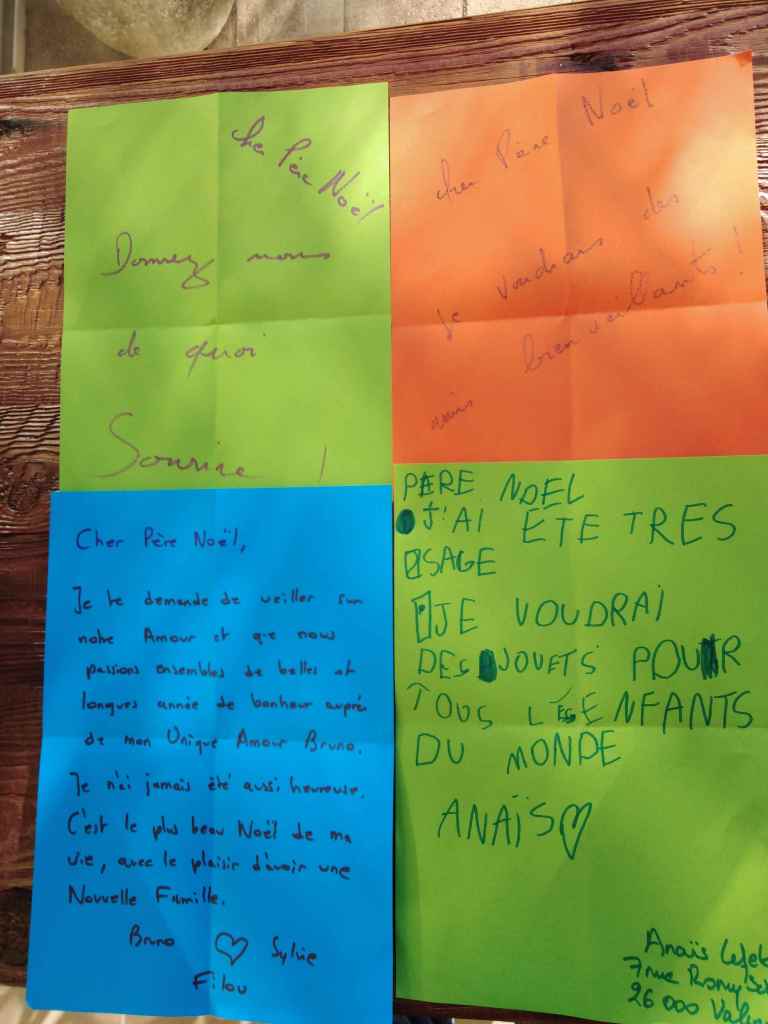 cher Père Noël
Donnez nous
de quoi
Sourire !
cher Père Noël
je voudrais des
bienveillants !
Cher Père Noël,
Je te demande de veiller sur
notre Amour et que nous
passions ensembles de belles et
longues année de bonheur auprès
de mon Unique Amour Bruno.
Je n'ai jamais été aussi heureuse.
C'est le plus beau Noël de ma
vie, avec le plaisir d'avoir une
Nouvelle Famille.
Bruno ♡ Sylvie
Filou
PERE NOEL
J'AI ETE TRES
SAGE
JE VOUDRAI
DES JOUETS POUR
TOUS LES ENFANTS
DU MONDE
ANAÏS ♡
Anaïs
7 rue Romy
26 000